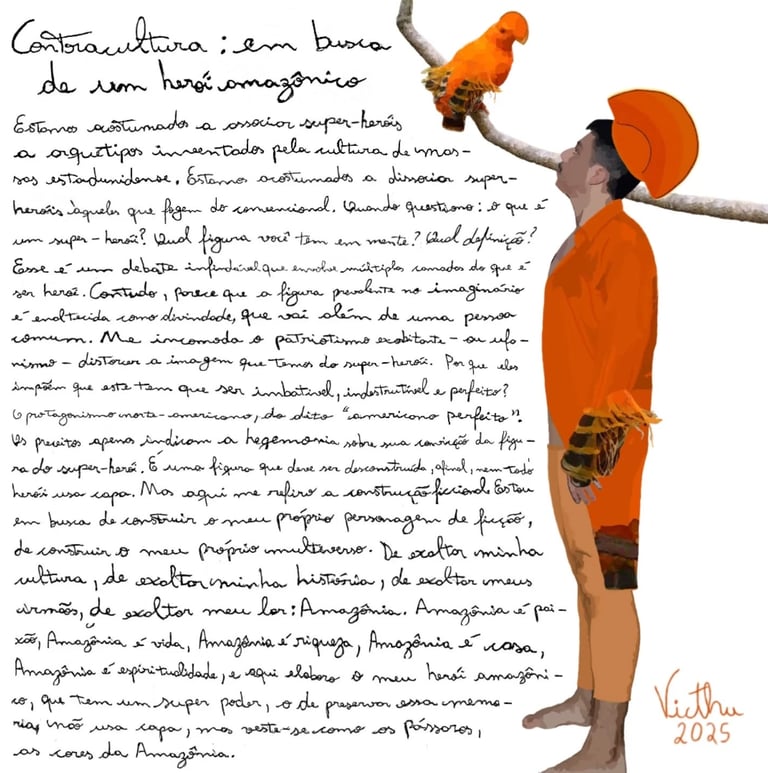 Contracultura: em busca
de um herói amazônico
Estamos acostumados a associar super-heróis
a arquétipos inventados pela cultura de mas-
sas estadunidense. Estamos acostumados a dissociar super-
heróis àqueles que fogem do convencional. Quando questiono: o que é
um super-herói? Qual figura você tem em mente? Qual definição?
Esse é um debate infindável que envolve múltiplas camadas do que é
ser herói. Contudo, parece que a figura prevalente no imaginário
é enaltecida como divindade, que vai além de uma pessoa
comum. Me incomoda o patriotismo exorbitante - ou ufa-
nismo - distorcer a imagem que temos do super-herói. Por que eles
impõem que este tem que ser imbatível, indestrutível e perfeito?
O protagonismo norte-americano, do dito "americano perfeito".
Os preceitos apenas indicam a hegemonia sobre sua convicção da figu-
ra do super-herói. É uma figura que deve ser desconstruída, afinal, nem todo
herói usa capa. Mas aqui me refiro a construção ficcional. Estou
em busca de construir o meu próprio personagem de ficção,
de construir o meu próprio multiverso. De exaltar minha
cultura, de exaltar minha história, de exaltar meus
irmãos, de exaltar meu lar: Amazônia. Amazônia é pai-
xão, Amazônia é vida, Amazônia é riqueza, Amazônia é casa,
Amazônia é espiritualidade, e aqui elaboro o meu herói amazôni-
co, que tem um super poder, o de preservar essa memó-
ria, não usa capa, mas veste-se como os pássaros,
as cores da Amazônia.
Victhu
2025